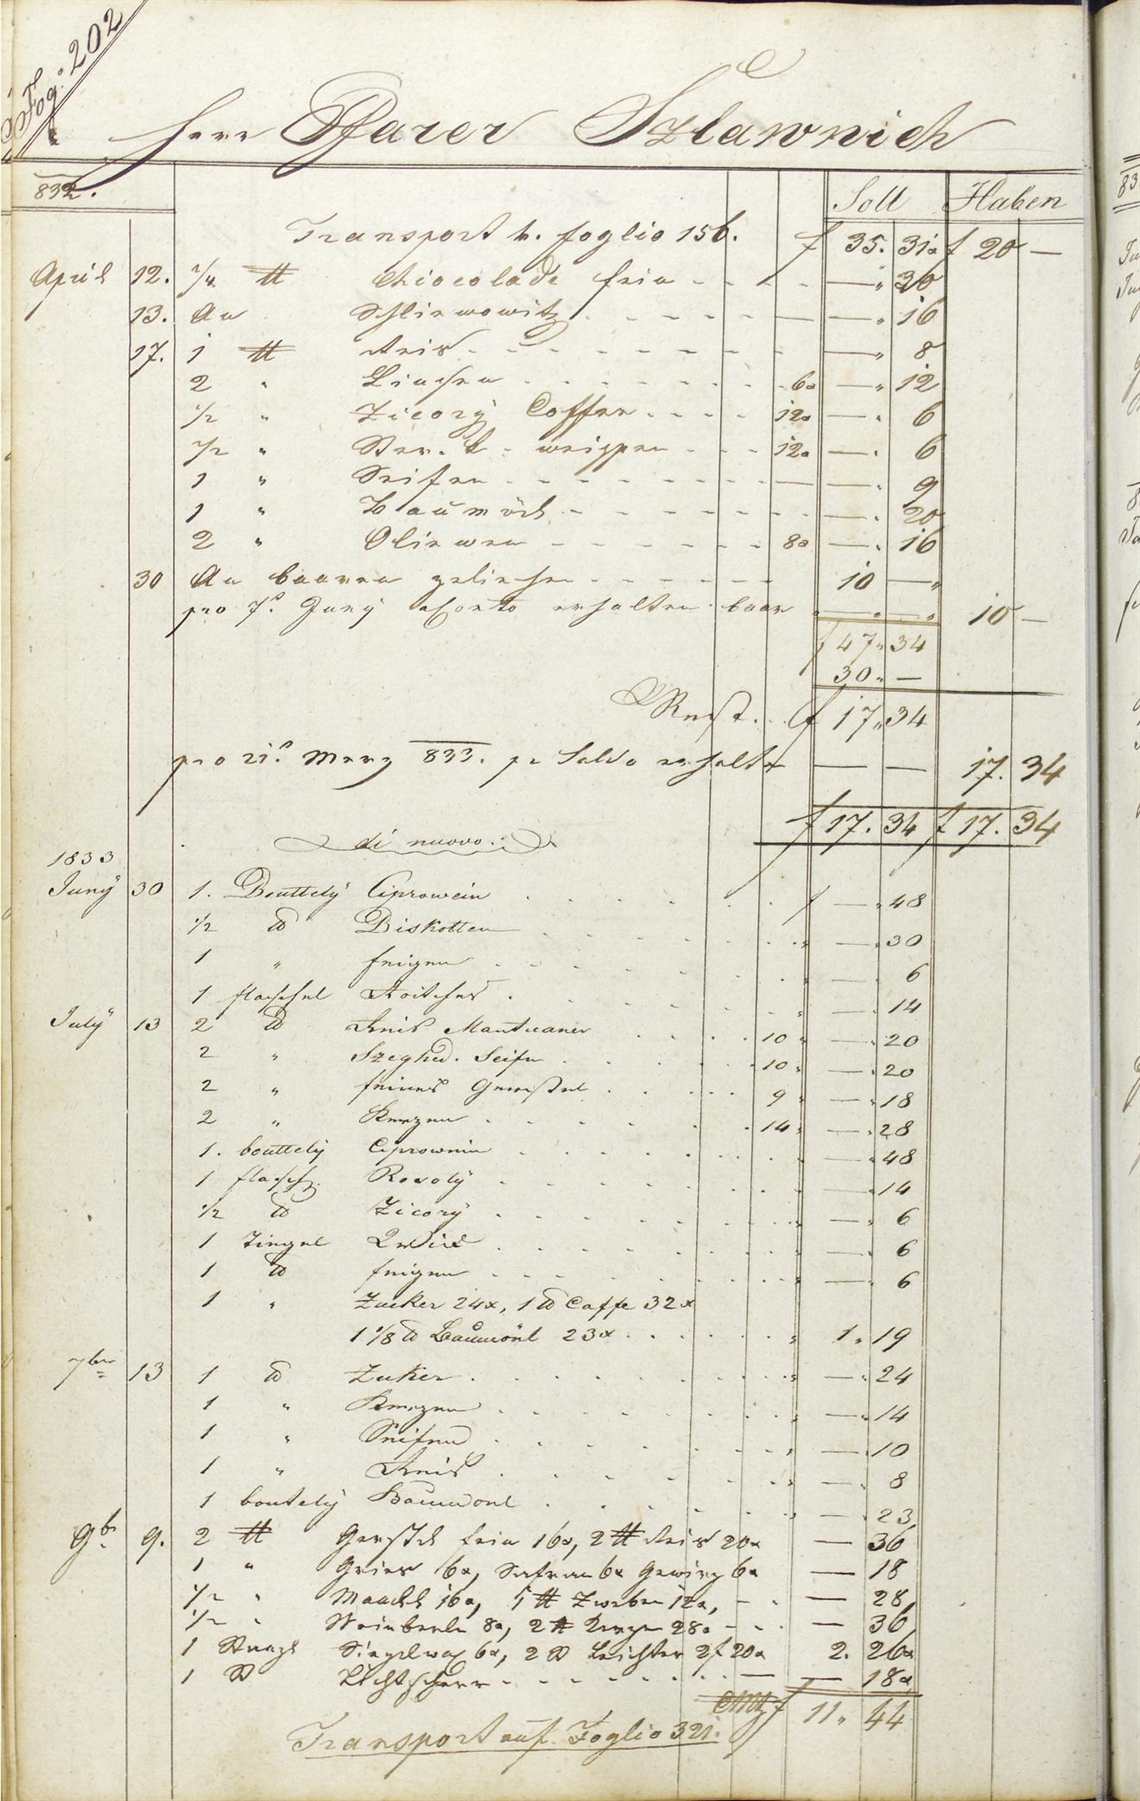 Fog:º 202
Herr Pfarer Szlawnich
832. Soll Haben
Transport v. foglio 156. f 35. 31x f 20 —
April 12. 1/4 ℔ Chiocolade fein — " 30
13. An Schliwowitz — " 16
17. 1 ℔ Reis — " 8
2 " Linsen 6x — " 12
1/2 " Zicorÿ Coffee 12x — " 6
1/2 " 12x — " 6
1 " Seifen — " 9
1 " Baumöhl — " 20
2 " Oliwen 8x — " 16
30 An baaren geliehen 10 — "
pro 7º Junÿ aConto erhalten baar — " — " 10 —
f 47 " 34
30 " —
Rest f 17 " 34
pro 21º Merz 833. pr Saldo erhalten — — 17. 34
f 17. 34 f 17. 34
di nuovo:
1833
Junÿ 30 1. Bouttelÿ Ciprowein f — " 48
1/2 ℔ Biskotten — " 30
1 " feigen — " 6
1 flaschel — " 14
Julÿ 13 2 ℔ Reis Mantuaner 10 — " 20
2 " Szeghed. Seife 10 — " 20
2 " feines Gerstel 9 — " 18
2 " Kerzen 14 — " 28
1. bouttelÿ Ciprowein — " 48
1 flasch. Rosolÿ — " 14
1/2 ℔ Zicorÿ — " 6
1 — " 6
1 ℔ feigen — " 6
1 " Zucker 24x, 1 ℔ Caffe 32x
1 1/8 ℔ Baumöhl 23x 1 " 19
7ber 13 1 ℔ Zuker — " 24
1 " Kerzen — " 14
1 " Seifen — " 10
1 " Reis — " 8
1 boutelÿ Baumöhl — " 23
9br 9. 2 ℔ Gerstel fein 16x, 2 ℔ Reis 20x — 36
1 " Gries 6x, Safran 6x Gewirz 6x — 18
1/2 " Mandl 16x, 1 ℔ Zweben 12x, — 28
1/2 " Weinberln 8x, 2 ℔ Kerzen 28x — 36
1 Siegelwax 6x, 2 Leichter 2f 20x 2. 26x
1 Lichtscheer — 18x
CMz f 11 " 44
Transport auf Foglio 321.